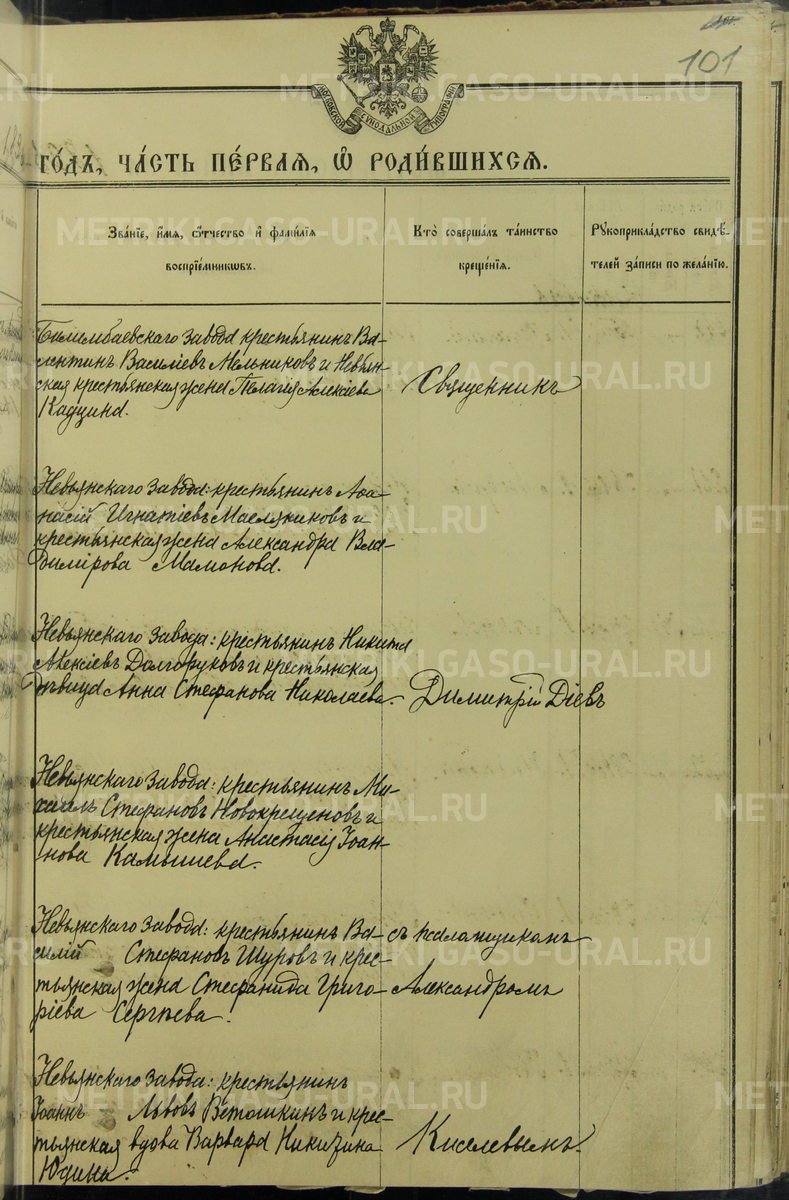 101
МОСКОВСКОЙ СѴНОДАЛЬНОЙ ТИПОГРАФІИ
го́дъ, ча́сть пе́рвая, ѡ҆ роди́вшихся.
Зва́нїе, и҆́мя, ѻ҆́тчество и҆ фами́лїя
воспрїе́мникѡвъ.
Кто̀ соверша́лъ та́инство
креще́нїя.
Рукоприкла́дство свидѣ́-
телей за́писи по жела́нїю.
Билимбаевскаго завода крестьянинъ Ва-
лентинъ Василіевъ Мельниковъ и Невьян-
ская крестьянская жена Пелагія Алексіева
Кадцина.
Священникъ
Невьянскаго завода: крестьянинъ Аѳа-
насій Игнатіевъ Масляниковъ и
крестьянская жена Александра Вла-
димірова Мамонова.
Невьянскаго завода: крестьянинъ Никита
Алексіевъ Долгоруковъ и крестьянская
дѣвица Анна Стефанова Николаева.
Димитрій Діевъ
Невьянскаго завода: крестьянинъ Ми-
хаилъ Стефановъ Новокрещеновъ и
крестьянская жена Анастасія Іоан-
нова Камышева.
Невьянскаго завода: крестьянинъ Ва-
силій Стефановъ Шуровъ и крес-
тьянская жена Стефанида Григо-
ріева Сергѣева.
съ псаломщикомъ
Александромъ
Невьянскаго завода: крестьянинъ
Іоаннъ Львовъ Вѣтошкинъ и крес-
тьянская вдова Варвара Никитина
Юдина.
Киселевымъ.
METRIKI.GASO-URAL.RU